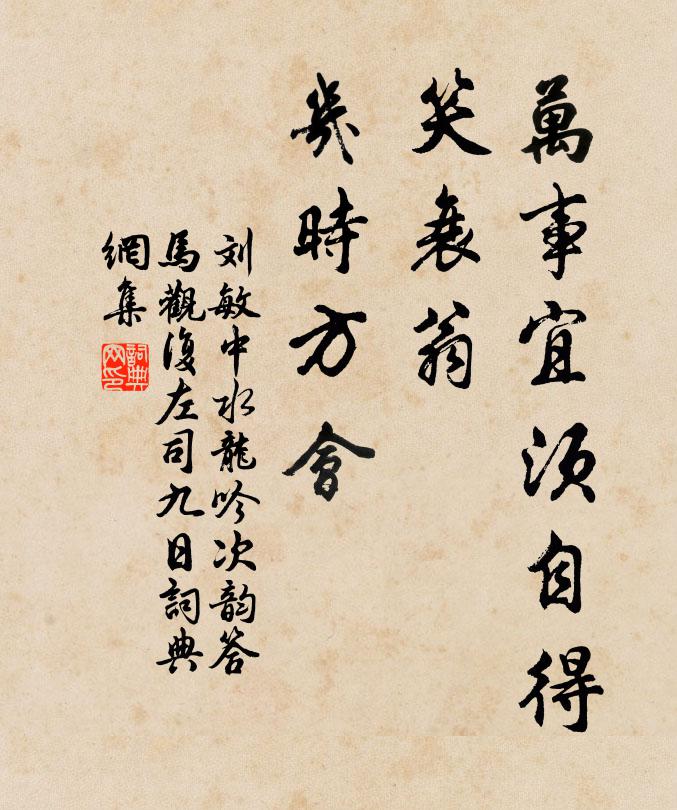 萬事宜須自得
笑衰翁
幾時方會
刘敏中水龍吟次韵答
馬觀復左司九日詞典
網集
詞典網印